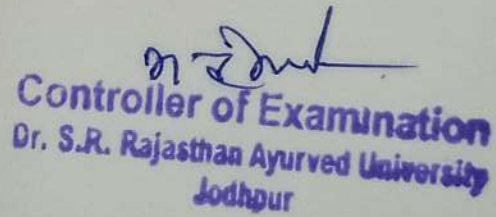 Controller of Examination
Dr. S.R. Rajasthan Ayurved University
Jodhpur